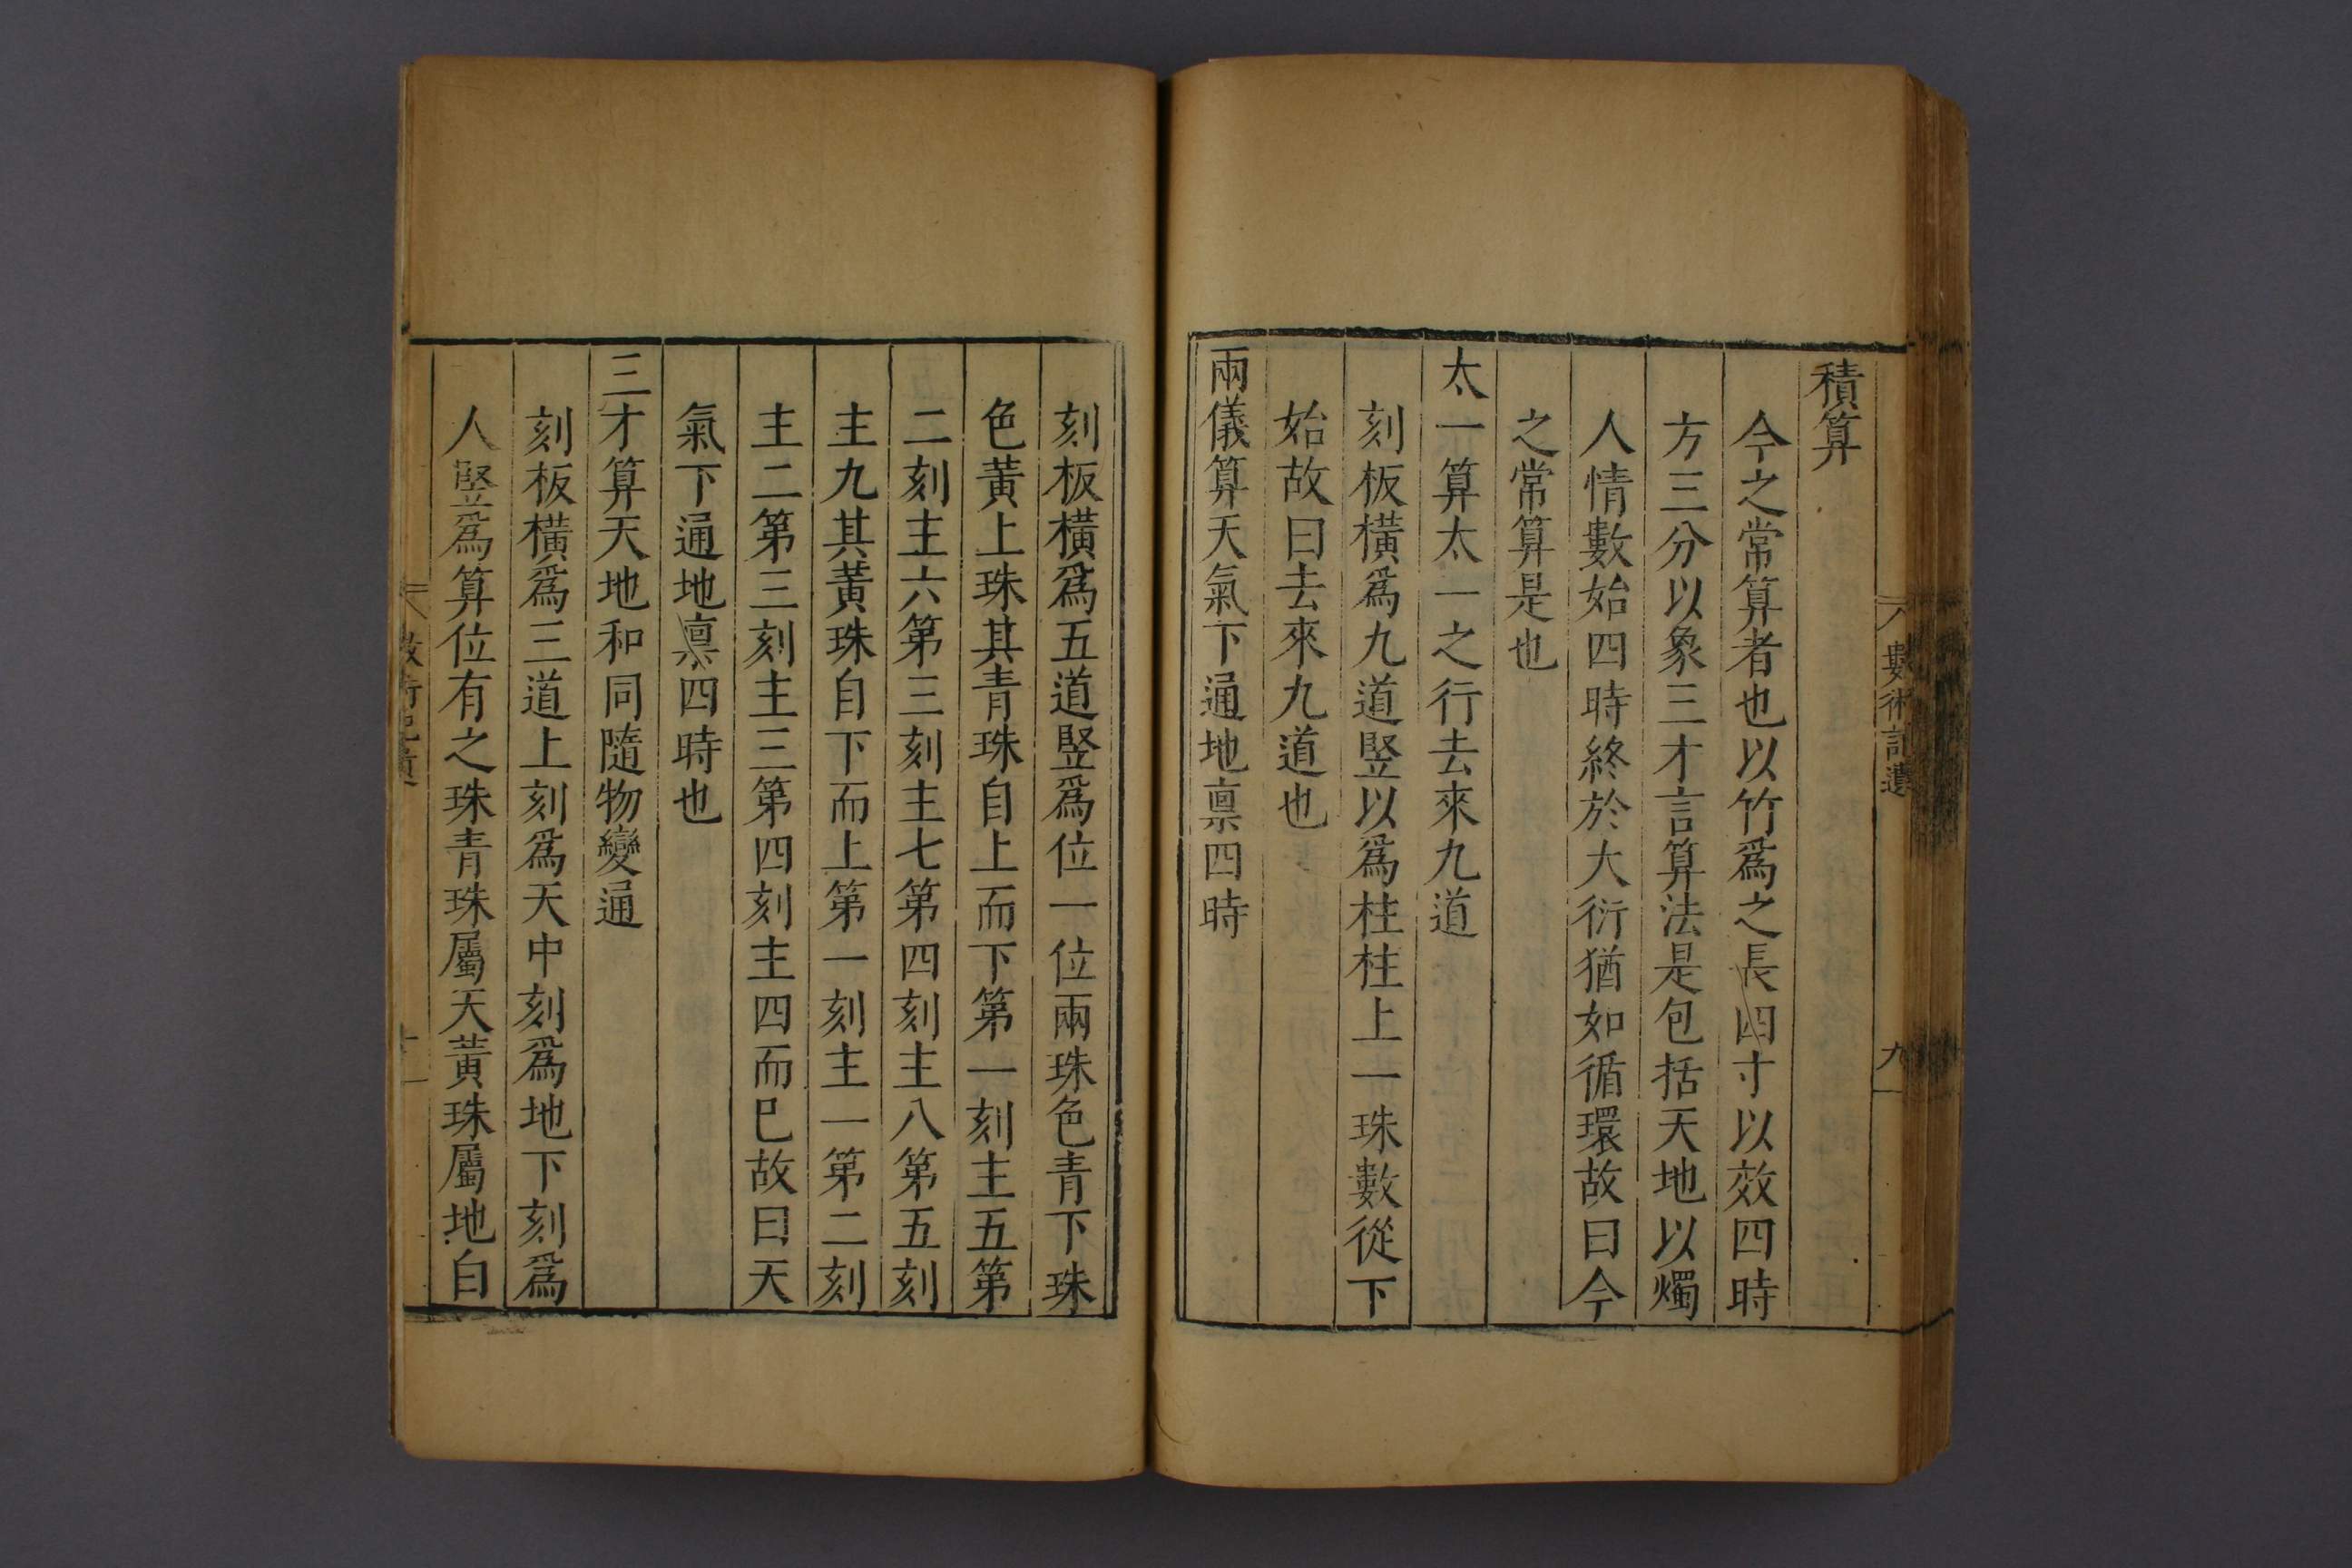 積算
今之常算者也以竹爲之長四寸以效四時
方三分以象三才言算法是包括天地以燭
人情數始四時終於大衍猶如循環故曰今
之常算是也
太一算太一之行去來九道
刻板橫爲九道竪以爲柱柱上一珠數從下
始故曰去來九道也
兩儀算天氣下通地禀四時
數術記遺
九
刻板橫爲五道竪爲位一位兩珠色青下珠
色黃上珠其青珠自上而下第一刻主五第
二刻主六第三刻主七第四刻主八第五刻
主九其黃珠自下而上第一刻主一第二刻
主二第三刻主三第四刻主四而巳故曰天
氣下通地禀四時也
三才算天地和同隨物變通
刻板橫爲三道上刻爲天中刻爲地下刻爲
人竪爲算位有之珠青珠屬天黃珠屬地白